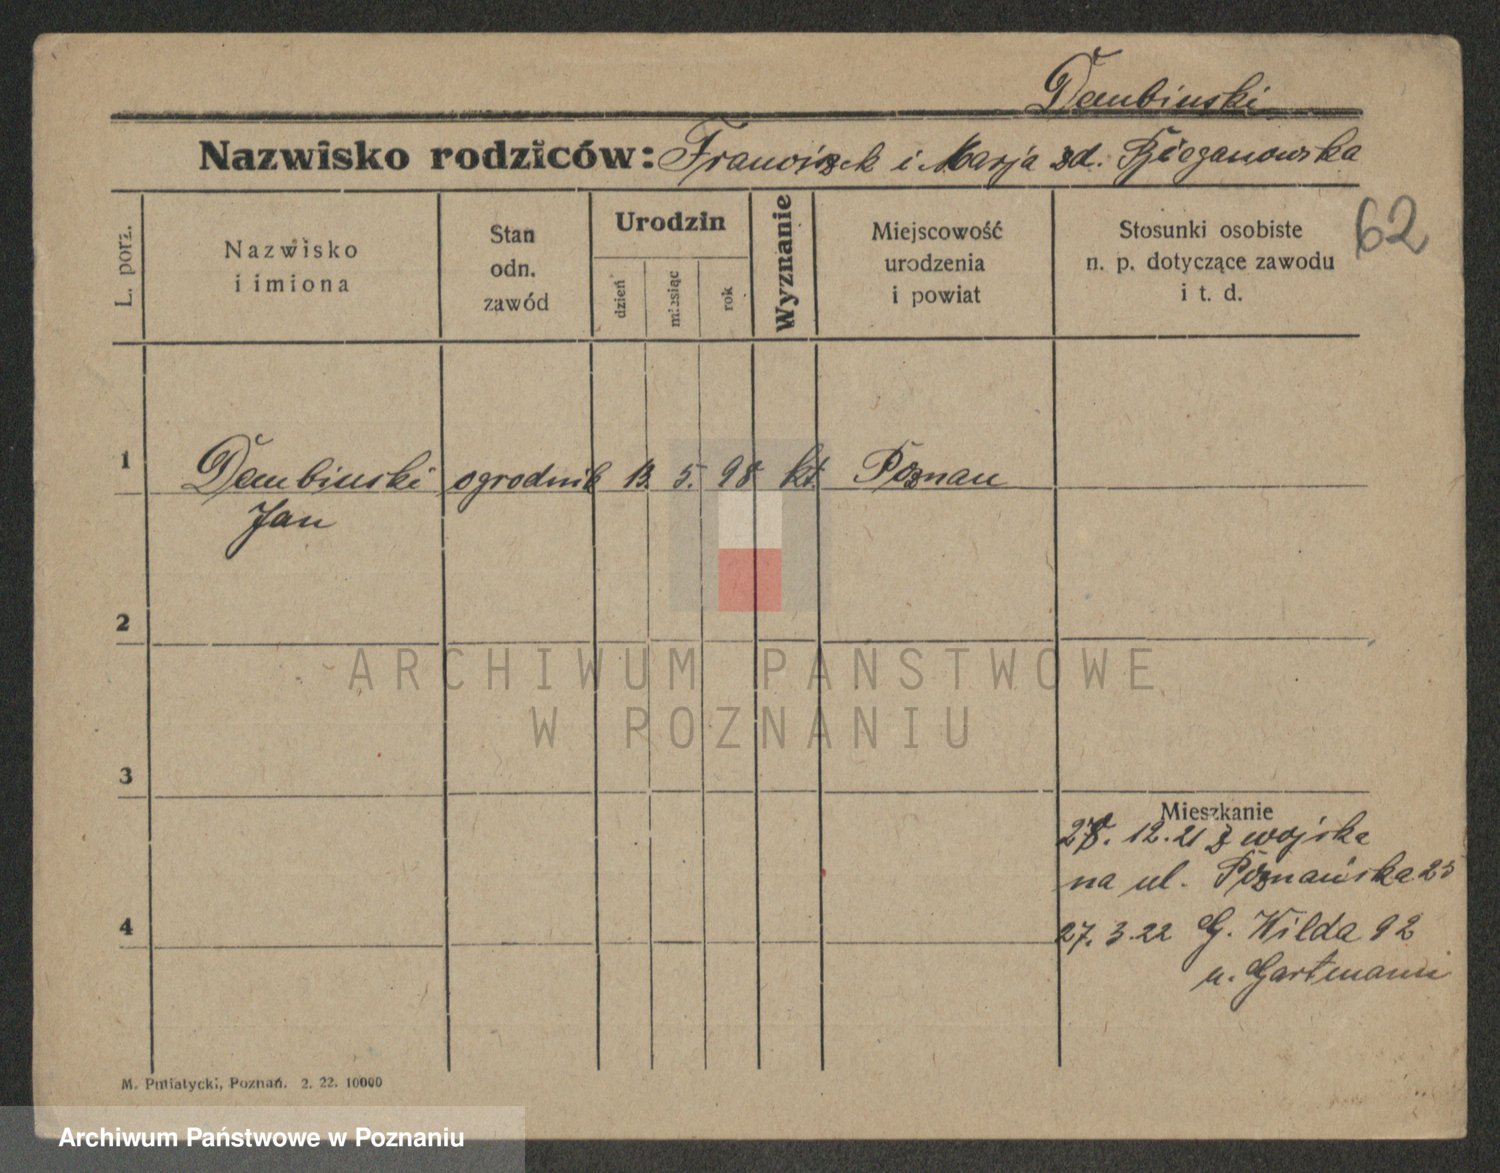 Dembinski
Nazwisko rodziców: Franciszek i Marja zd.
62
L. porz.
Nazwisko
i imiona
Stan
odn.
zawód
Urodzin
dzień
miesiąc
rok
Wyznanie
Miejscowość
urodzenia
i powiat
Stosunki osobiste
n. p. dotyczące zawodu
i t. d.
1 Dembinski ogrodnik 13. 5. 98 kt. Poznan
Jan
2
3
4
Mieszkanie
28. 12. 21 z wojska
na ul. Poznańska 25
27. 3. 22 G. Wilda 92
u. Gartmann
M. Putiatycki, Poznań. 2. 22. 10000
ARCHIWUM PAŃSTWOWE
W POZNANIU
Archiwum Państwowe w Poznaniu